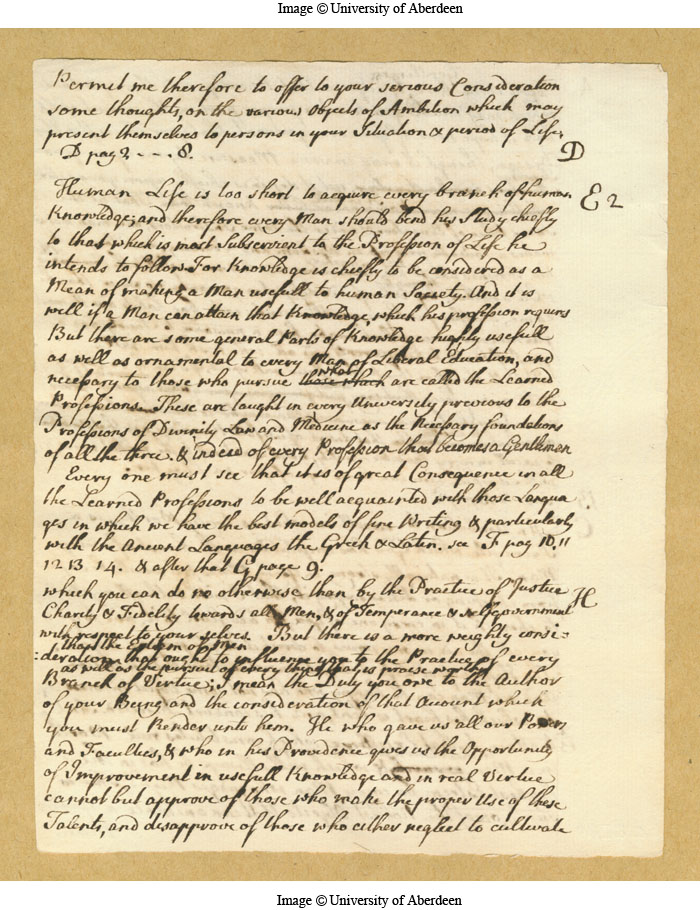 Image © University of Aberdeen
Permit me therefore to offer to your serious Consideration
some thoughts, on the various Objects of Ambition which may
present themselves to persons in your Situation & period of Life.
D pag 2 - - - 8. D
Human Life is too short to acquire every branch of human E 2
Knowledge; and therefore every Man should bend his Study chiefly
to that which is most Subservient to the Profession of Life he
intends to follow. For Knowledge is chiefly to be considered as a
Mean of making a Man usefull to human Society. And it is
well if a Man can attain that Knowledge which his profession requires
But there are some general Parts of Knowledge highly usefull
as well as ornamental to every Man of Liberal Education, and
what
necessary to those who pursue those which are called the Learned
Professions. These are taught in every University previous to the
Professions of Divinity Law and Medicine as the Necessary foundations
of all the three. & indeed of every Profession that becomes a Gentleman
Every one must see that it is of great Consequence in all
the Learned Professions to be well acquainted with those Langua
ges in which we have the best models of fine Writing & particularly
with the Ancient Languages the Greek & Latin. see F pag 10, 11
12 13 14. & after that G page 9.
which you can do no otherwise than by the Practice of Justice H
Charity & Fidelity towards all Men, & of Temperance & Selfgovernment
with respect to your selves. But there is a more weighty consi=
than the Esteem of Men
=deration that ought to influence you to the Practice of every
as well as the pursuit of every thing that is praise worthy
Branch of Virtue; I mean the Duty you owe to the Author
of your Being and the consideration of that Account which
you must Render unto him. He who gave us all our Powers
and Faculties, & who in his Providence gives us the Opportunity
of Improvement in usefull Knowledge and in real Virtue
cannot but approve of those who make the proper Use of these
Talents, and disapprove of those who either neglect to cultivate
Image © University of Aberdeen